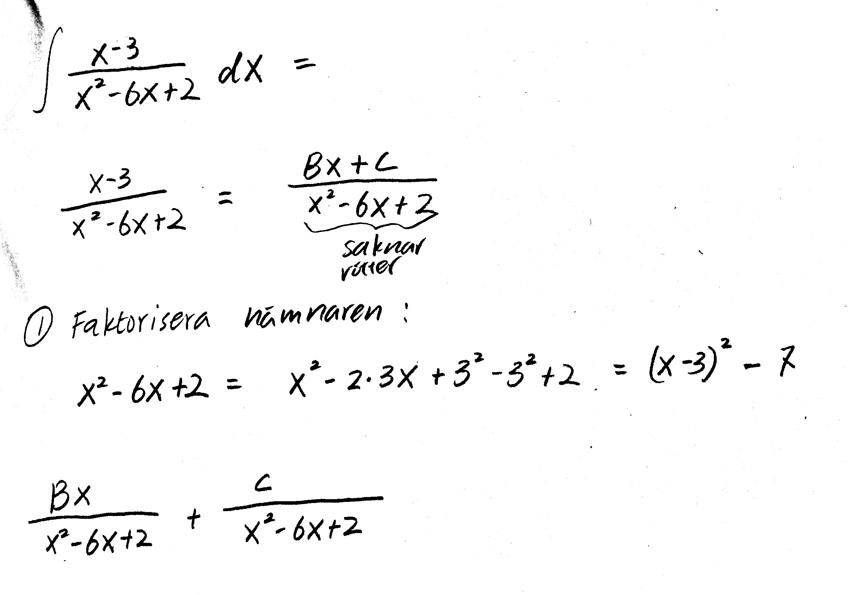 ∫ (x-3)/(x²-6x+2) dx =
(x-3)/(x²-6x+2) = (Bx+C)/(x²-6x+2)
saknar
rötter
① Faktorisera nämnaren :
x²-6x+2 = x²-2·3x+3²-3²+2 = (x-3)² - 7
Bx/(x²-6x+2) + C/(x²-6x+2)